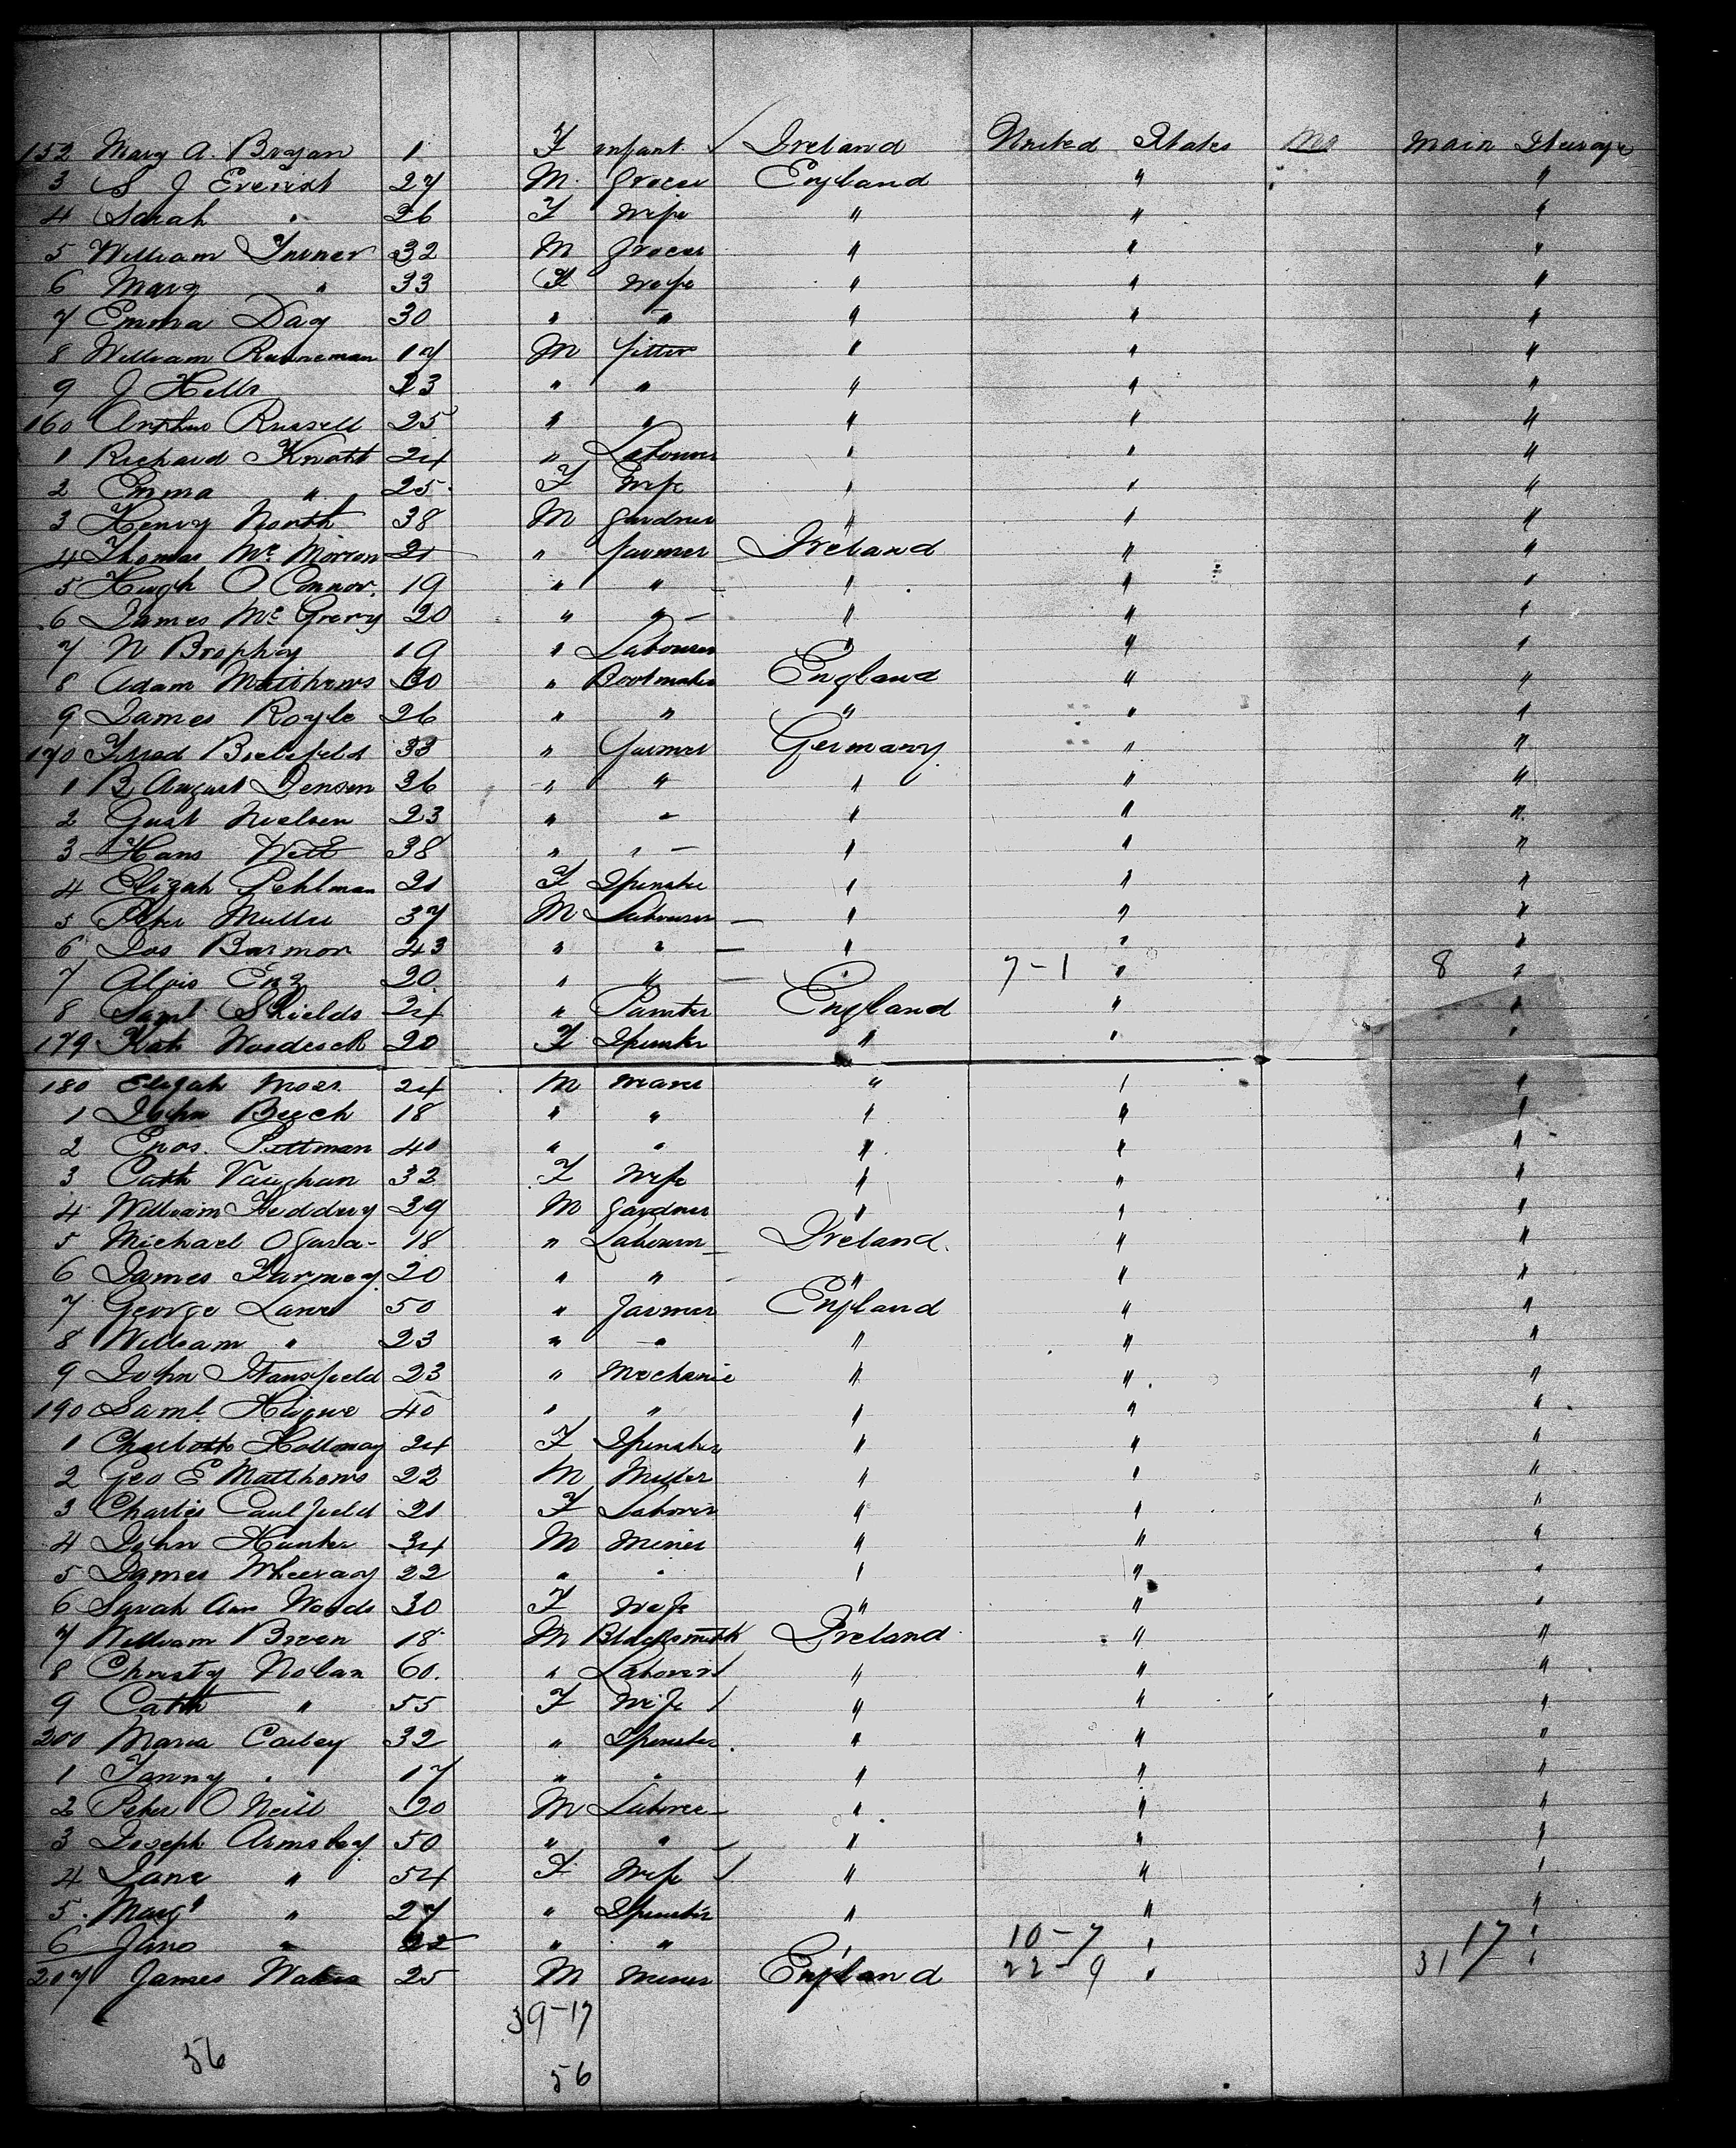 152 Mary A. Bryan 1 F infant ✓ Ireland United States Main Steerage
3 S J Everist 27 M. Grocer England " "
4 Sarah " 26 F Wife " " "
5 William Turner 32 M Grocer " " "
6 Mary " 33 F Wife " " "
7 Emma Day 30 " " " " "
8 William 17 M fitter " " "
9 J Hells 23 " " " " "
160 Arthur Russell 25 " " " " "
1 Richard Knott 24 " Labourer " " "
2 Emma " 25 F Wife " " "
3 Henry North 38 M Gardner " " "
4 Thomas Mc Morran 21 " farmer Ireland " "
5 Hugh O Connor. 19 " " " " "
6 James Mc Grory 20 " " " " "
7 N Brophy 19 " Labourer " " "
8 Adam Matthews 30 " Bootmaker England " "
9 James Royle 26 " " " " "
170 Bielefeld 33 " Farmer Germany " "
1 B August Jensen 26 " " " " "
2 Gust Nielsen 23 " " " " "
3 Hans Witt 38 " " " " "
4 Elizah Pehlman 21 F Spinster " " "
5 Peter Muller 37 M Labourer " " "
6 Jos Barmon 43 " " " " "
7 Alois Enz 20 " " " 7-1 " 8 "
8 Saml Shields 24 " Painter England " "
179 Kate 20 F Spinster " " "
180 Elijah Moss 24 M weaver " " "
1 John Beech 18 " " " " "
2 Enos. Pittman 40 " " " " "
3 Cath Vaughan 32 F Wife " " "
4 William 39 M Gardner " " "
5 Michael O Gara 18 " Labourer Ireland. " "
6 James 20 " " " " "
7 George Lane 50 " Farmer England " "
8 William " 23 " " " " "
9 John Stansfield 23 " Mechanic " " "
190 Saml. 40 " " " " "
1 Charlotte Holloway 24 F Spinster " " "
2 Geo E Matthews 22 M Miller " " "
3 Charles Caulfield 21 F Laborer " " "
4 John Hunter 34 M Miner " " "
5 James 22 " " " " "
6 Sarah Ann Woods 30 F Wife " " "
7 William Breen 18 M Blacksmith Ireland " "
8 Christy Nolan 60. " Laborer ✓ " " "
9 Cath " 55 F Wife / " " "
200 Maria Carley 32 " Spinster. " " "
1 Fanny " 17 " " " " "
2 Peter O Neill 20 M Laborer " " "
3 Joseph Armsby 50 " " " " "
4 Jane " 54 F Wife ✓ " " "
5. Margt " 27 " Spinster " " "
6 Jane " 22 " " " 10-7 " 17 "
207 James 25 M Miner England 22-9 " 31 "
39-17
56 56